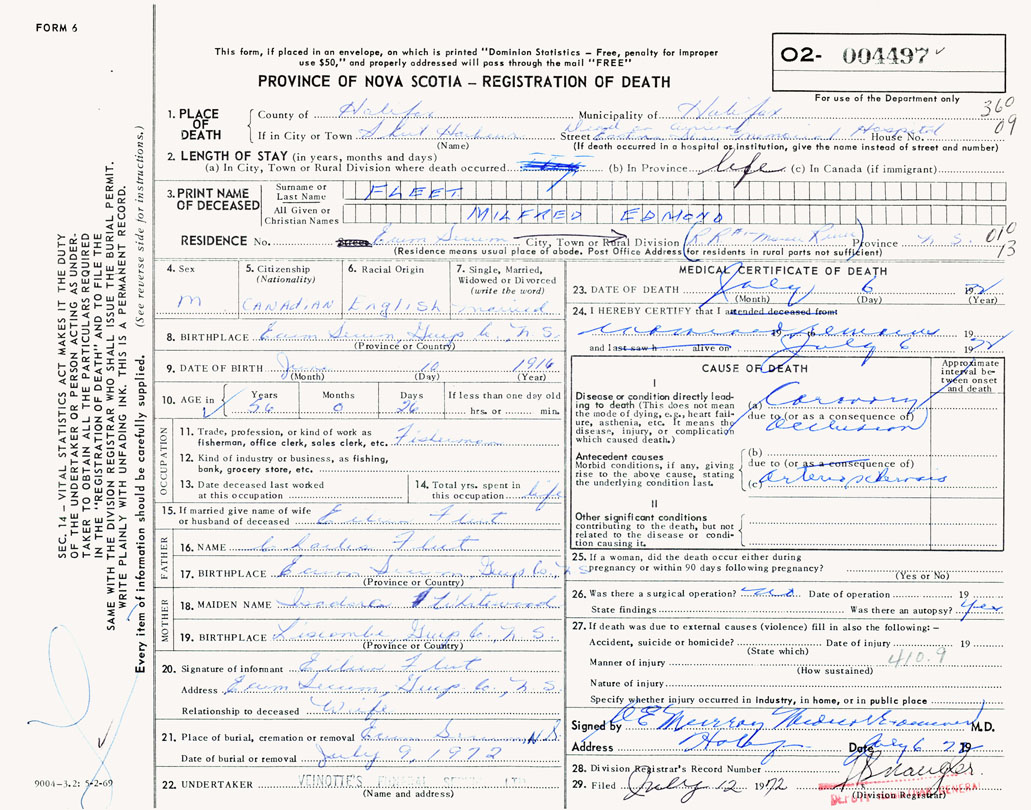 FORM 6
This form, if placed in an envelope, on which is printed "Dominion Statistics – Free, penalty for improper
use $50," and properly addressed will pass through the mail "FREE"
PROVINCE OF NOVA SCOTIA – REGISTRATION OF DEATH
02- 004497
For use of the Department only
360
09
1. PLACE OF DEATH
County of Halifax Municipality of Halifax
If in City or Town Sheet Harbour Street Dead on arrival Eastern Shore Memorial Hospital House No.
(Name) (If death occurred in a hospital or institution, give the name instead of street and number)
2. LENGTH OF STAY (in years, months and days)
(a) In City, Town or Rural Division where death occurred (b) In Province life (c) In Canada (if immigrant)
3. PRINT NAME OF DECEASED
Surname or Last Name FLEET
All Given or Christian Names MILFRED EDMOND
RESIDENCE No. Street Ecum Secum City, Town or Rural Division (R.R. #1 Moser River) Province N.S.
010
13
(Residence means usual place of abode. Post Office Address for residents in rural parts not sufficient)
4. Sex
M.
5. Citizenship (Nationality)
CANADIAN
6. Racial Origin
English
7. Single, Married, Widowed or Divorced (write the word)
married
8. BIRTHPLACE Ecum Secum, Guys Co. N.S.
(Province or Country)
9. DATE OF BIRTH June 10 1916
(Month) (Day) (Year)
10. AGE in Years 56 Months 0 Days 26 If less than one day old
hrs. or min.
OCCUPATION
11. Trade, profession, or kind of work as
fisherman, office clerk, sales clerk, etc. Fisherman
12. Kind of industry or business, as fishing,
bank, grocery store, etc.
13. Date deceased last worked
at this occupation
14. Total yrs. spent in
this occupation life
15. If married give name of wife
or husband of deceased Fleet
FATHER
16. NAME Charles Fleet
17. BIRTHPLACE Ecum Secum, Guys Co. N.S.
(Province or Country)
MOTHER
18. MAIDEN NAME
19. BIRTHPLACE Liscombe, Guys Co. N.S.
(Province or Country)
20. Signature of informant Fleet
Address Ecum Secum, Guys Co., N.S.
Relationship to deceased Wife
21. Place of burial, cremation or removal Ecum Secum N.S.
Date of burial or removal July 9, 1972
22. UNDERTAKER VEINOTTE'S FUNERAL SERVICE LTD
(Name and address)
MEDICAL CERTIFICATE OF DEATH
23. DATE OF DEATH July 6 1972
(Month) (Day) (Year)
24. I HEREBY CERTIFY that I attended deceased from
19
and I last saw h alive on July 6 1972
CAUSE OF DEATH
Approximate interval between onset and death
I
Disease or condition directly leading to death (This does not mean the mode of dying, e.g., heart failure, asthenia, etc. It means the disease, injury, or complication which caused death.)
(a) Coronary
due to (or as a consequence of)
Occlusion
Antecedent causes
Morbid conditions, if any, giving rise to the above cause, stating the underlying condition last.
(b)
due to (or as a consequence of)
(c) Arteriosclerosis
II
Other significant conditions
contributing to the death, but not related to the disease or condition causing it.
25. If a woman, did the death occur either during
pregnancy or within 90 days following pregnancy?
(Yes or No)
26. Was there a surgical operation? no Date of operation 19
State findings Was there an autopsy? yes
27. If death was due to external causes (violence) fill in also the following: –
Accident, suicide or homicide? Date of injury 19
(State which)
410.9
Manner of injury
(How sustained)
Nature of injury
Specify whether injury occurred in industry, in home, or in public place
Signed by Murray Medical Examiner M.D.
Address Date July 6 72 19
28. Division Registrar's Record Number
29. Filed July 12 1972
(Division Registrar)
SEC. 14 – VITAL STATISTICS ACT MAKES IT THE DUTY
OF THE UNDERTAKER OR PERSON ACTING AS UNDER-
TAKER TO OBTAIN ALL THE PARTICULARS REQUIRED
IN THE "REGISTRATION OF DEATH" AND TO FILE THE
SAME WITH THE DIVISION REGISTRAR WHO SHALL ISSUE THE BURIAL PERMIT.
WRITE PLAINLY WITH UNFADING INK. THIS IS A PERMANENT RECORD.
Every item of information should be carefully supplied. (See reverse side for instructions.)
9004-3.2: 5-2-69